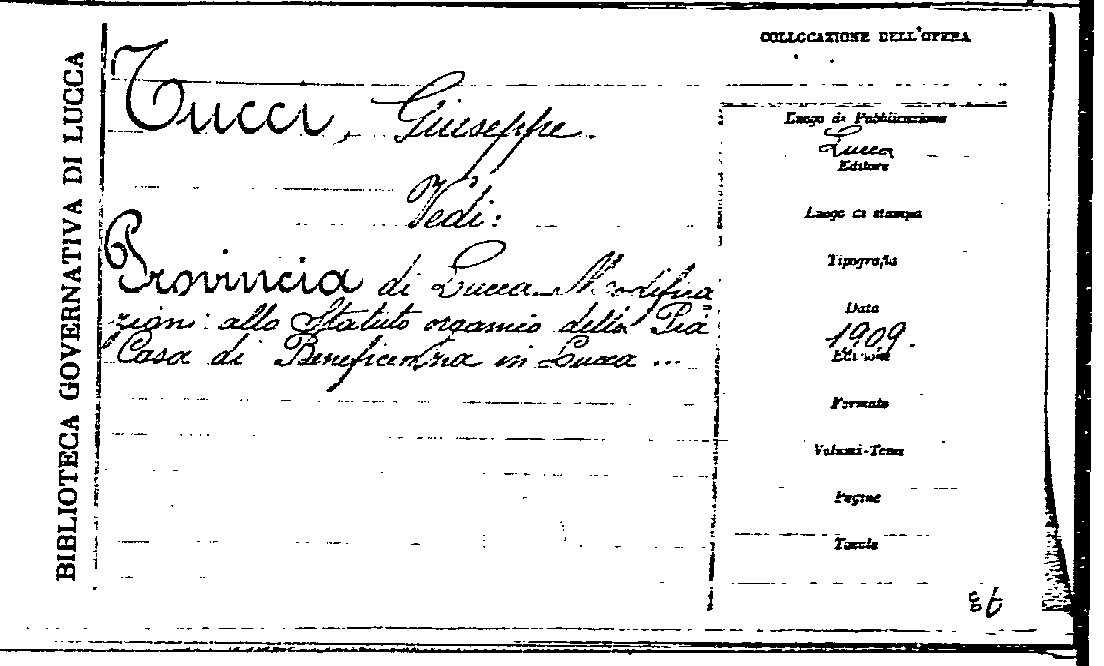 BIBLIOTECA GOVERNATIVA DI LUCCA
COLLOCAZIONE DELL'OPERA
Tucci, Giuseppe.
Vedi:
Provincia di Lucca Modifica
zioni allo Statuto organico della Pia
Casa di Beneficenza in Lucca ...
Luogo di Pubblicazione
Lucca
Editore
Luogo di stampa
Tipografia
Data
1909.
Edizione
Formato
Volumi-Tomi
Pagine
Tavole